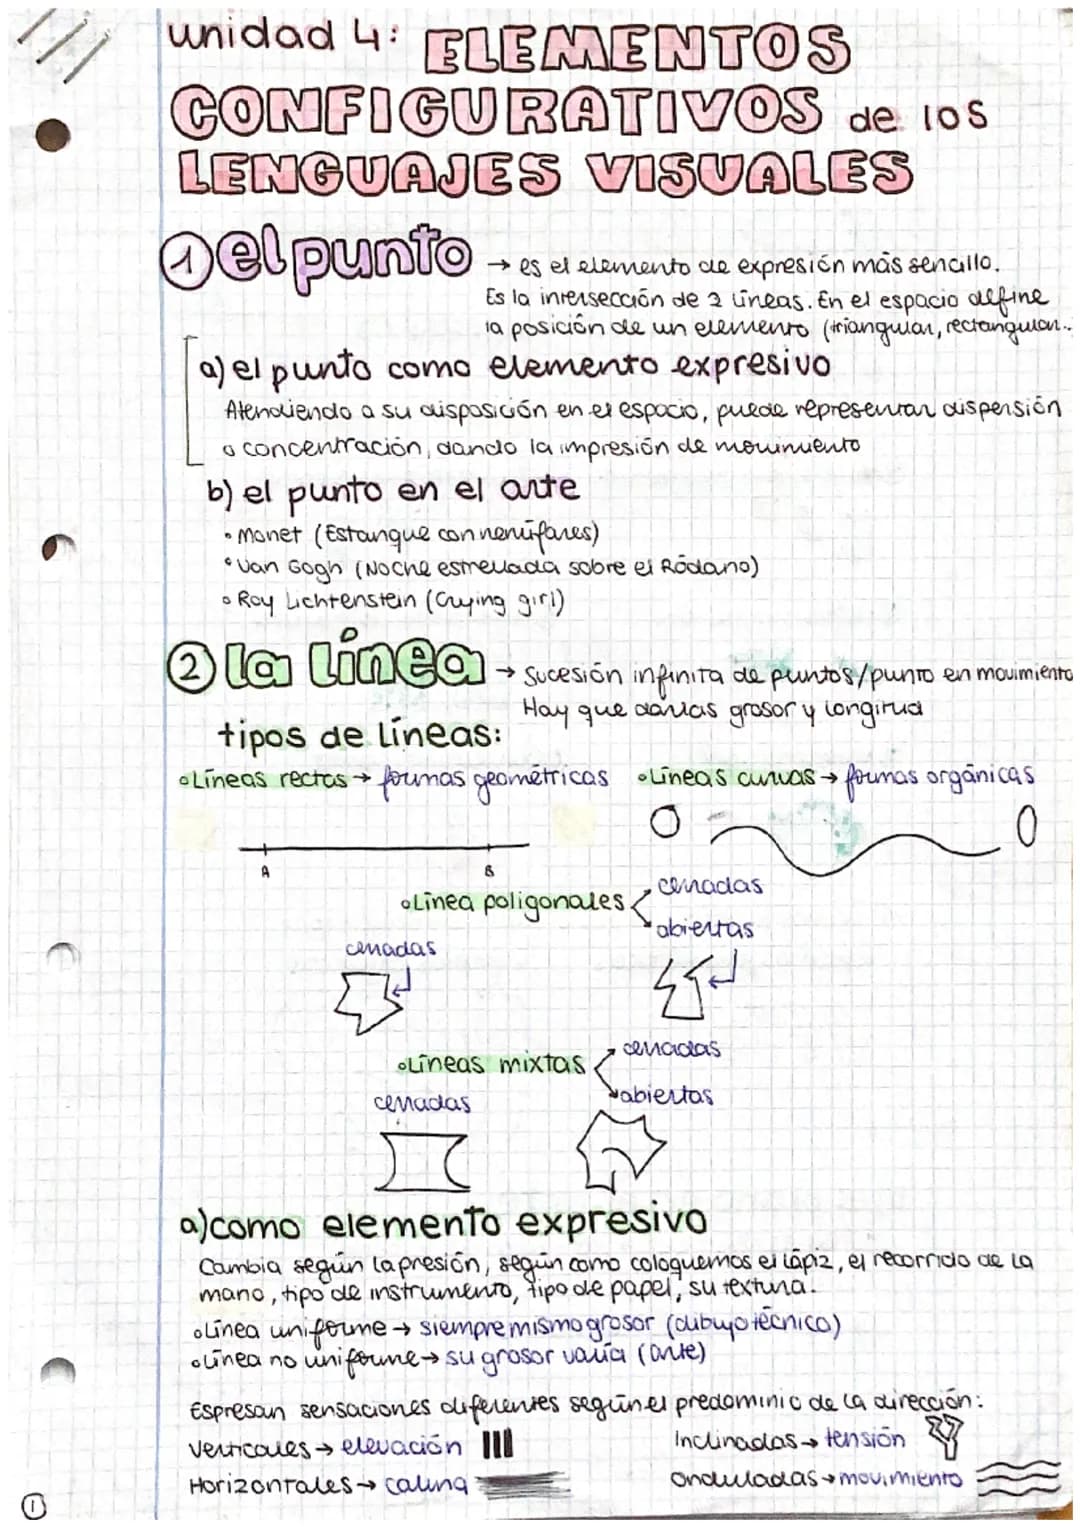 unidad 4: ELEMENTOS
CONFIGURATIVOS de los
LENGUAJES VISUALES
① el punto → es el elemento de expresión más sencillo.
Es la intersección de 2 líneas. En el espacio define
la posición de un elemento (triangular, rectangular...
a) el punto como elemento expresivo
Atendiendo a su disposición en el espacio, puede representar dispersión
o concentración, dando la impresión de movimiento
b) el punto en el arte
• Monet (Estanque con nenúfares)
• Van Gogh (Noche estrellada sobre el Ródano)
• Roy Lichtenstein (Crying girl)
② la línea → Sucesión infinita de puntos/punto en movimiento
Hay que darlas grosor y longitud
tipos de líneas:
• Líneas rectas → formas geométricas • Líneas curvas → formas orgánicas
A B
cerradas
• Línea poligonales
abiertas
cerradas
cerradas
• Líneas mixtas
abiertas
cerradas
a) como elemento expresivo
Cambia según la presión, según como coloquemos el lápiz, el recorrido de la
mano, tipo de instrumento, tipo de papel, su textura.
• Línea uniforme → siempre mismo grosor (dibujo técnico)
• Línea no uniforme → su grosor varía (arte)
Espresan sensaciones diferentes según el predominio de la dirección:
Verticales → elevación Inclinadas → tensión
Horizontales → calma Onduladas → movimiento
1